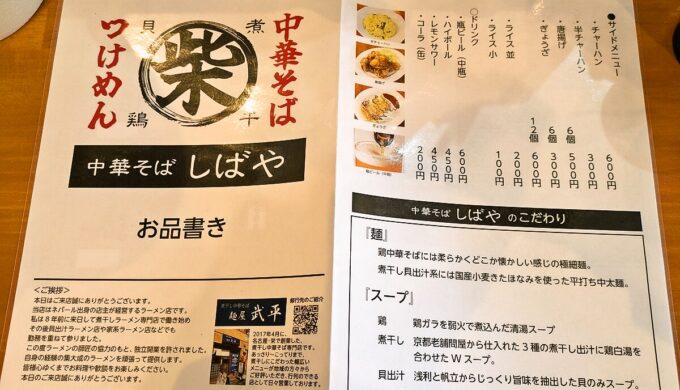 中華そば
つけめん
煮
干
貝
鶏
柴
中華そば しばや
お品書き
＜ご挨拶＞
本日はご来店誠にありがとうございます。
当店はネパール出身の店主が経営するラーメン店です。
私は8年前に来日して煮干しラーメン専門店で働き始め
その後貝出汁ラーメン店や家系ラーメン店などでも
勤務を重ねて参りました。
この度ラーメンの師匠の協力のもと、独立開業を許されました。
自身の経験の集大成のラーメンを頑張って提供します。
皆様心ゆくまでお料理や歓談をお楽しみください。
本日のご来店誠にありがとうございます。
煮干し中華そば専門店
麺屋 武平
修行先のご紹介
2017年4月に、
名古屋・栄で創業した、
煮干し中華そば専門店です。
あっさり～こってりまで、
煮干しにこだわった幅広い
メニューが地域の方々から
ご好評いただき、行列のできる
店として日々営業しております。
●サイドメニュー
・チャーハン 600円
・半チャーハン 300円
・唐揚げ 6個 500円
・ぎょうざ 6個 300円
12個 600円
・ライス 並 200円
・ライス 小 100円
○ドリンク
・瓶ビール（中瓶） 600円
・ハイボール 450円
・レモンサワー 450円
・コーラ（缶） 200円
ぎょうざ
瓶ビール（中瓶）
中華そば しばや のこだわり
『麺』
鶏中華そばには柔らかくどこか懐かしい感じの極細麺。
煮干し貝出汁系には国産小麦きたほなみを使った平打ち中太麺。
『スープ』
鶏 鶏ガラを弱火で煮込んだ清湯スープ
煮干し 京都老舗問屋から仕入れた3種の煮干し出汁に鶏白湯を
合わせたWスープ。
貝出汁 浅利と帆立からじっくり旨味を抽出した貝のみスープ。